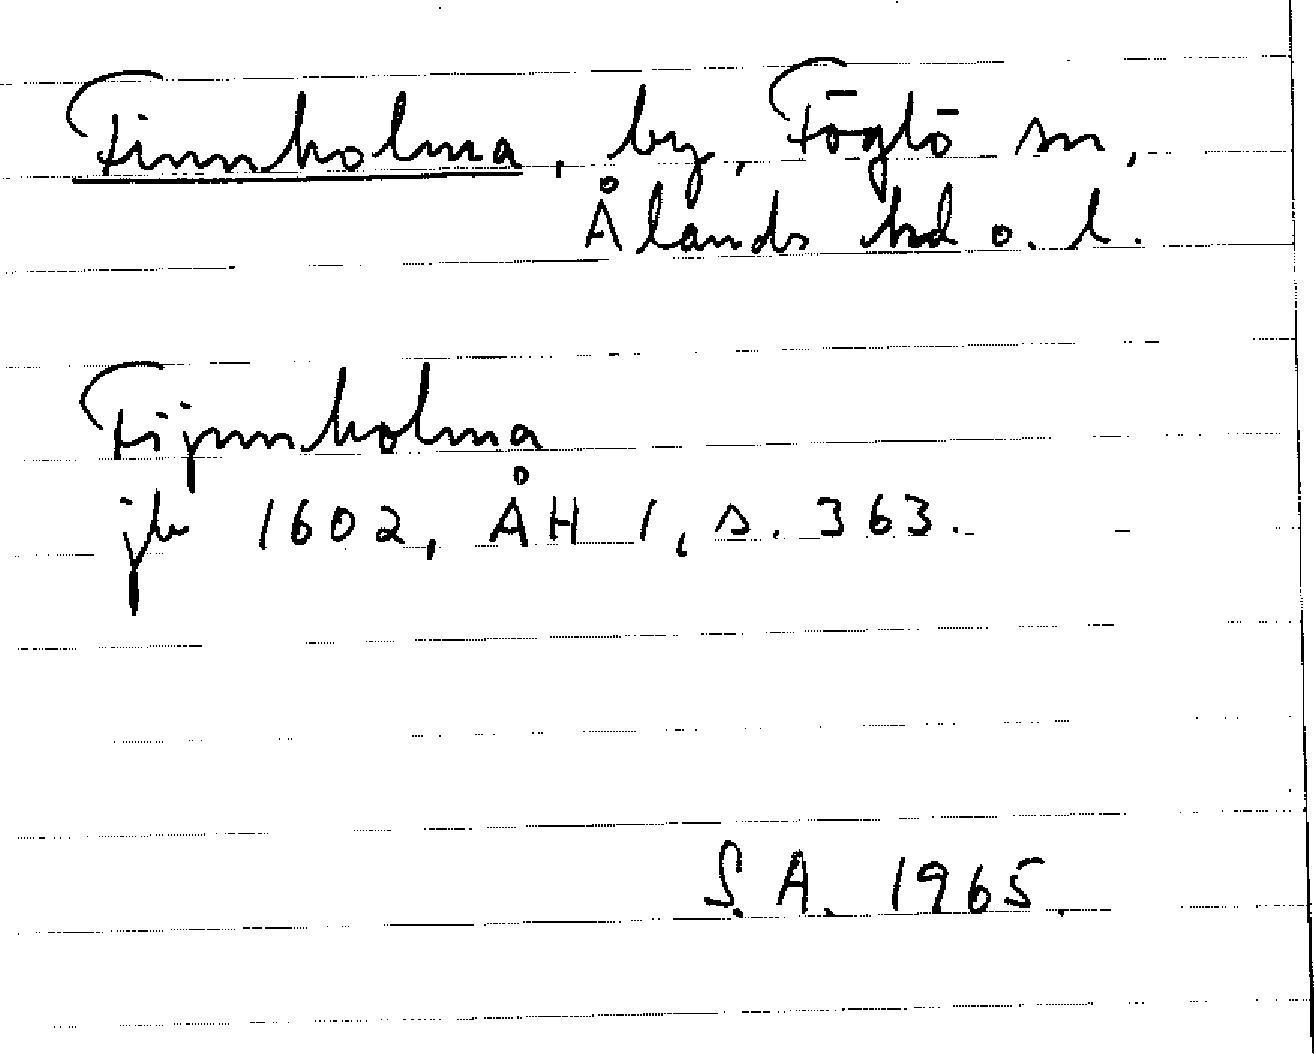 Finnholma, by, Föglö sn,
Ålands hd o. l.
Fijnnholma
jb 1602, ÅH 1, s. 363.
S. A. 1965.